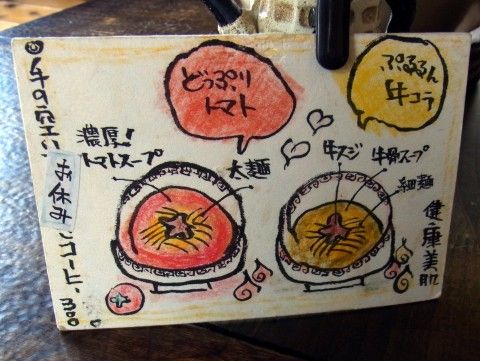 どっぷり
トマト
ぷるるん
牛コラ
濃厚!
トマトスープ
太麺
牛スジ
牛骨スープ
細麺
健康美肌
お休み
コーヒー 300